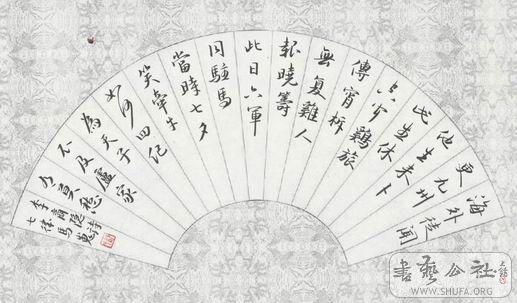 海外徒聞
更九州
他生未卜
此生休
傳宵柝
無復雞人
報曉籌
此日六軍
同駐馬
當時七夕
笑牽牛
如何四紀
為天子
不及盧家
有莫愁
李商隱詩
七律馬嵬
書藝公社
WWW.SHUFA.ORG